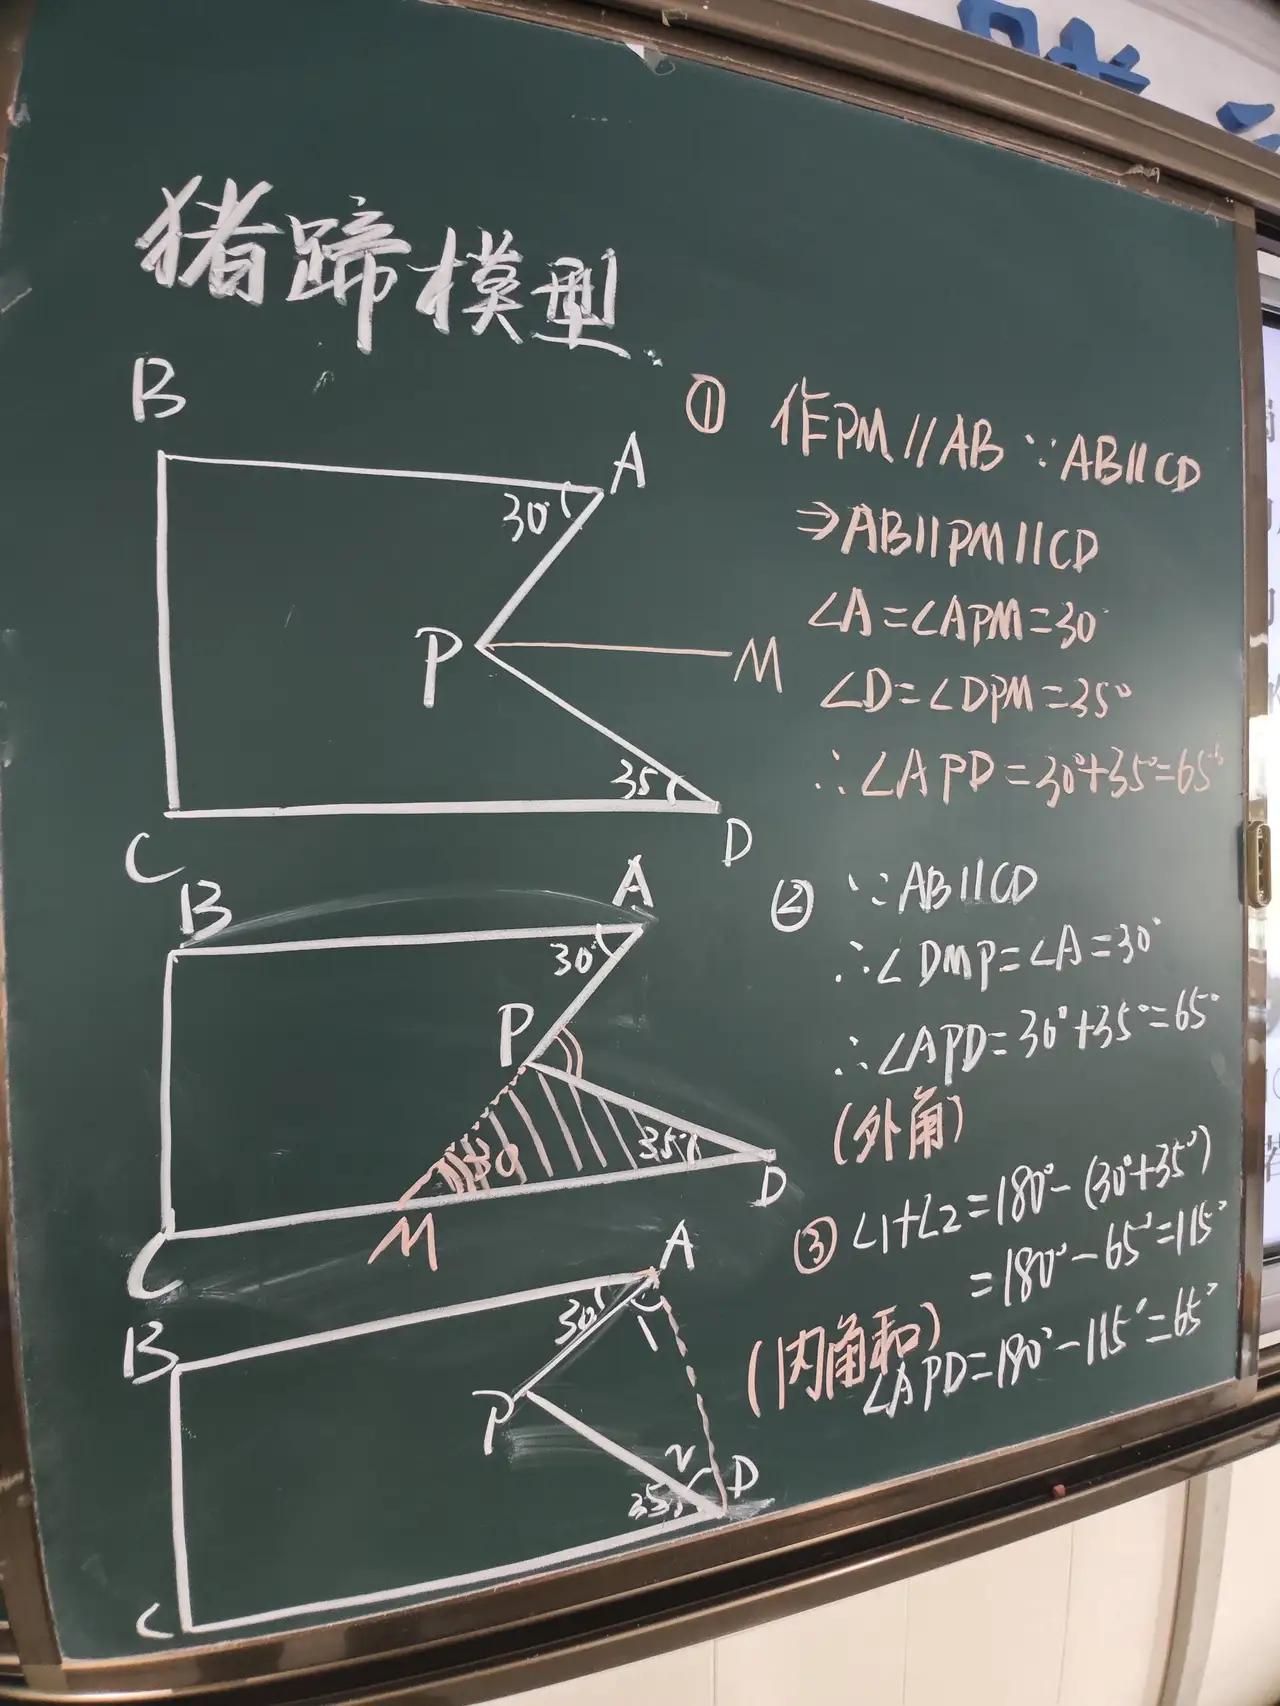 猪蹄模型
B
A
30°
P
M
35
C
D
① 作PM//AB ∵AB//CD
⇒AB//PM//CD
∠A=∠APM=30°
∠D=∠DPM=35°
∴∠APD=30°+35°=65°
B
A
30°
P
30
35°
M
D
C
② ∵AB//CD
∴∠DMP=∠A=30°
∴∠APD=30°+35°=65°
(外角)
A
B
30°
1
P
2
35
D
C
③ ∠1+∠2=180°-(30°+35°)
=180°-65°=115°
(内角和)
∠APD=180°-115°=65°